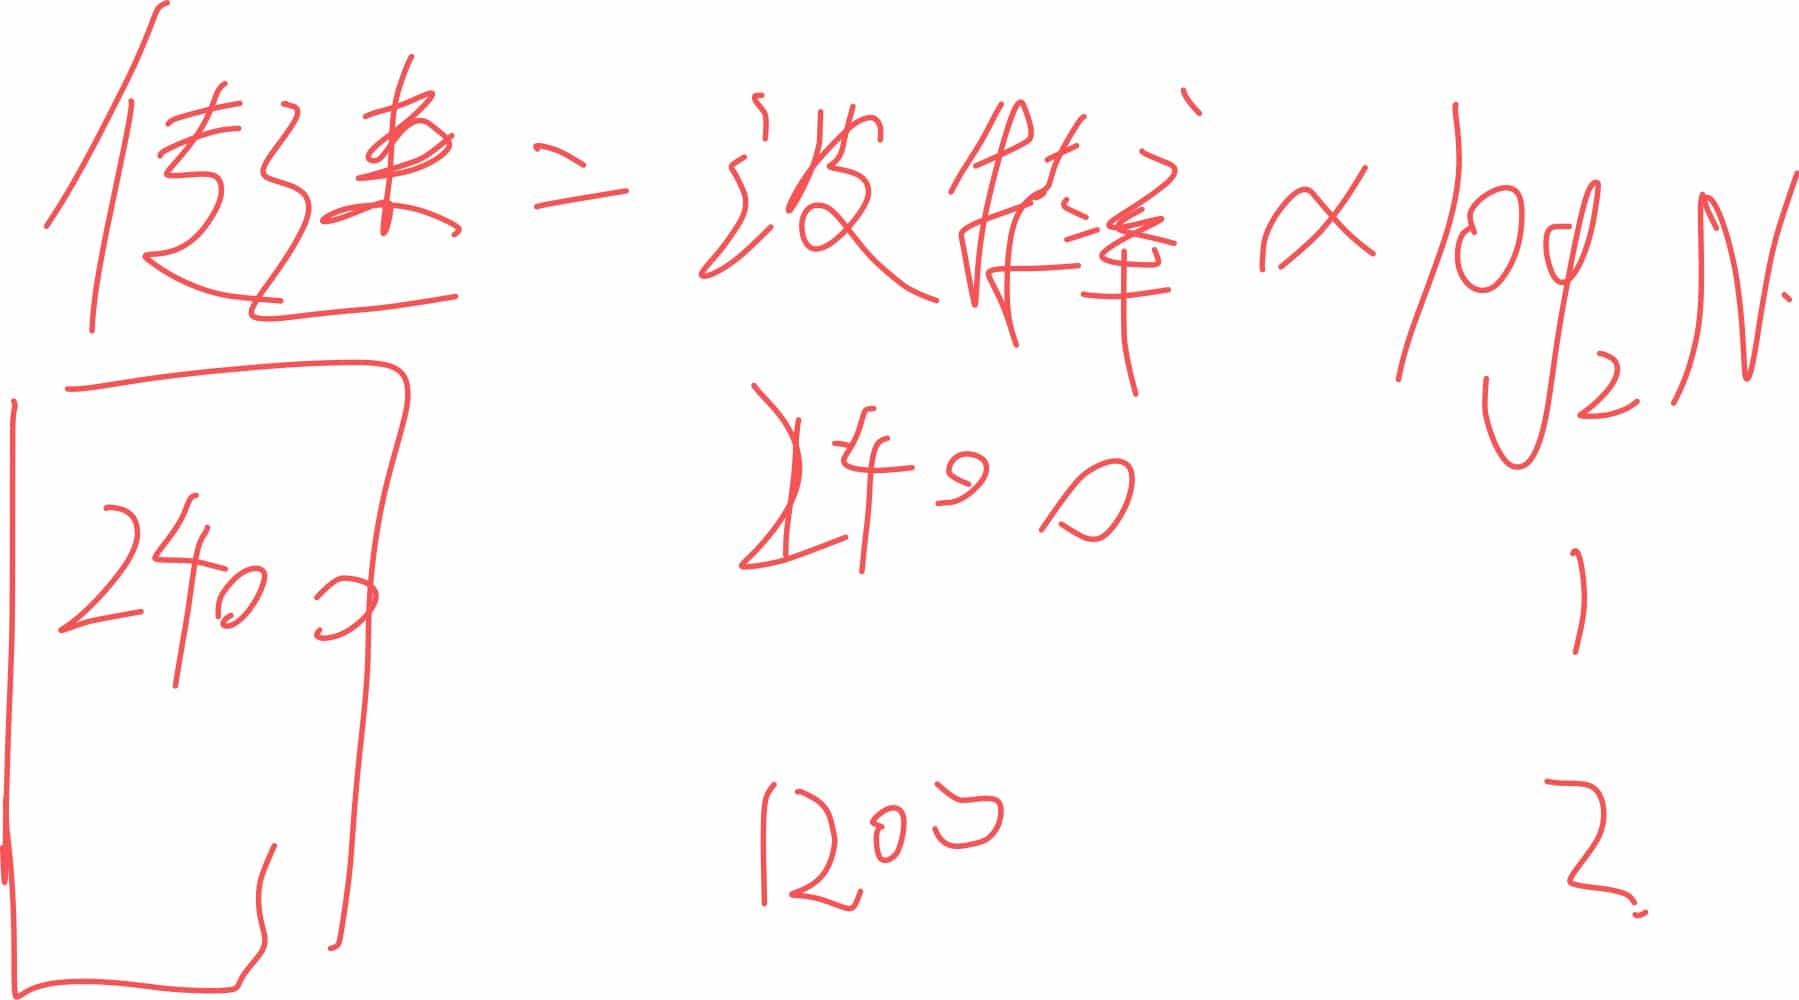 传速=波特率×log₂N
2400
2400
1
1200
2